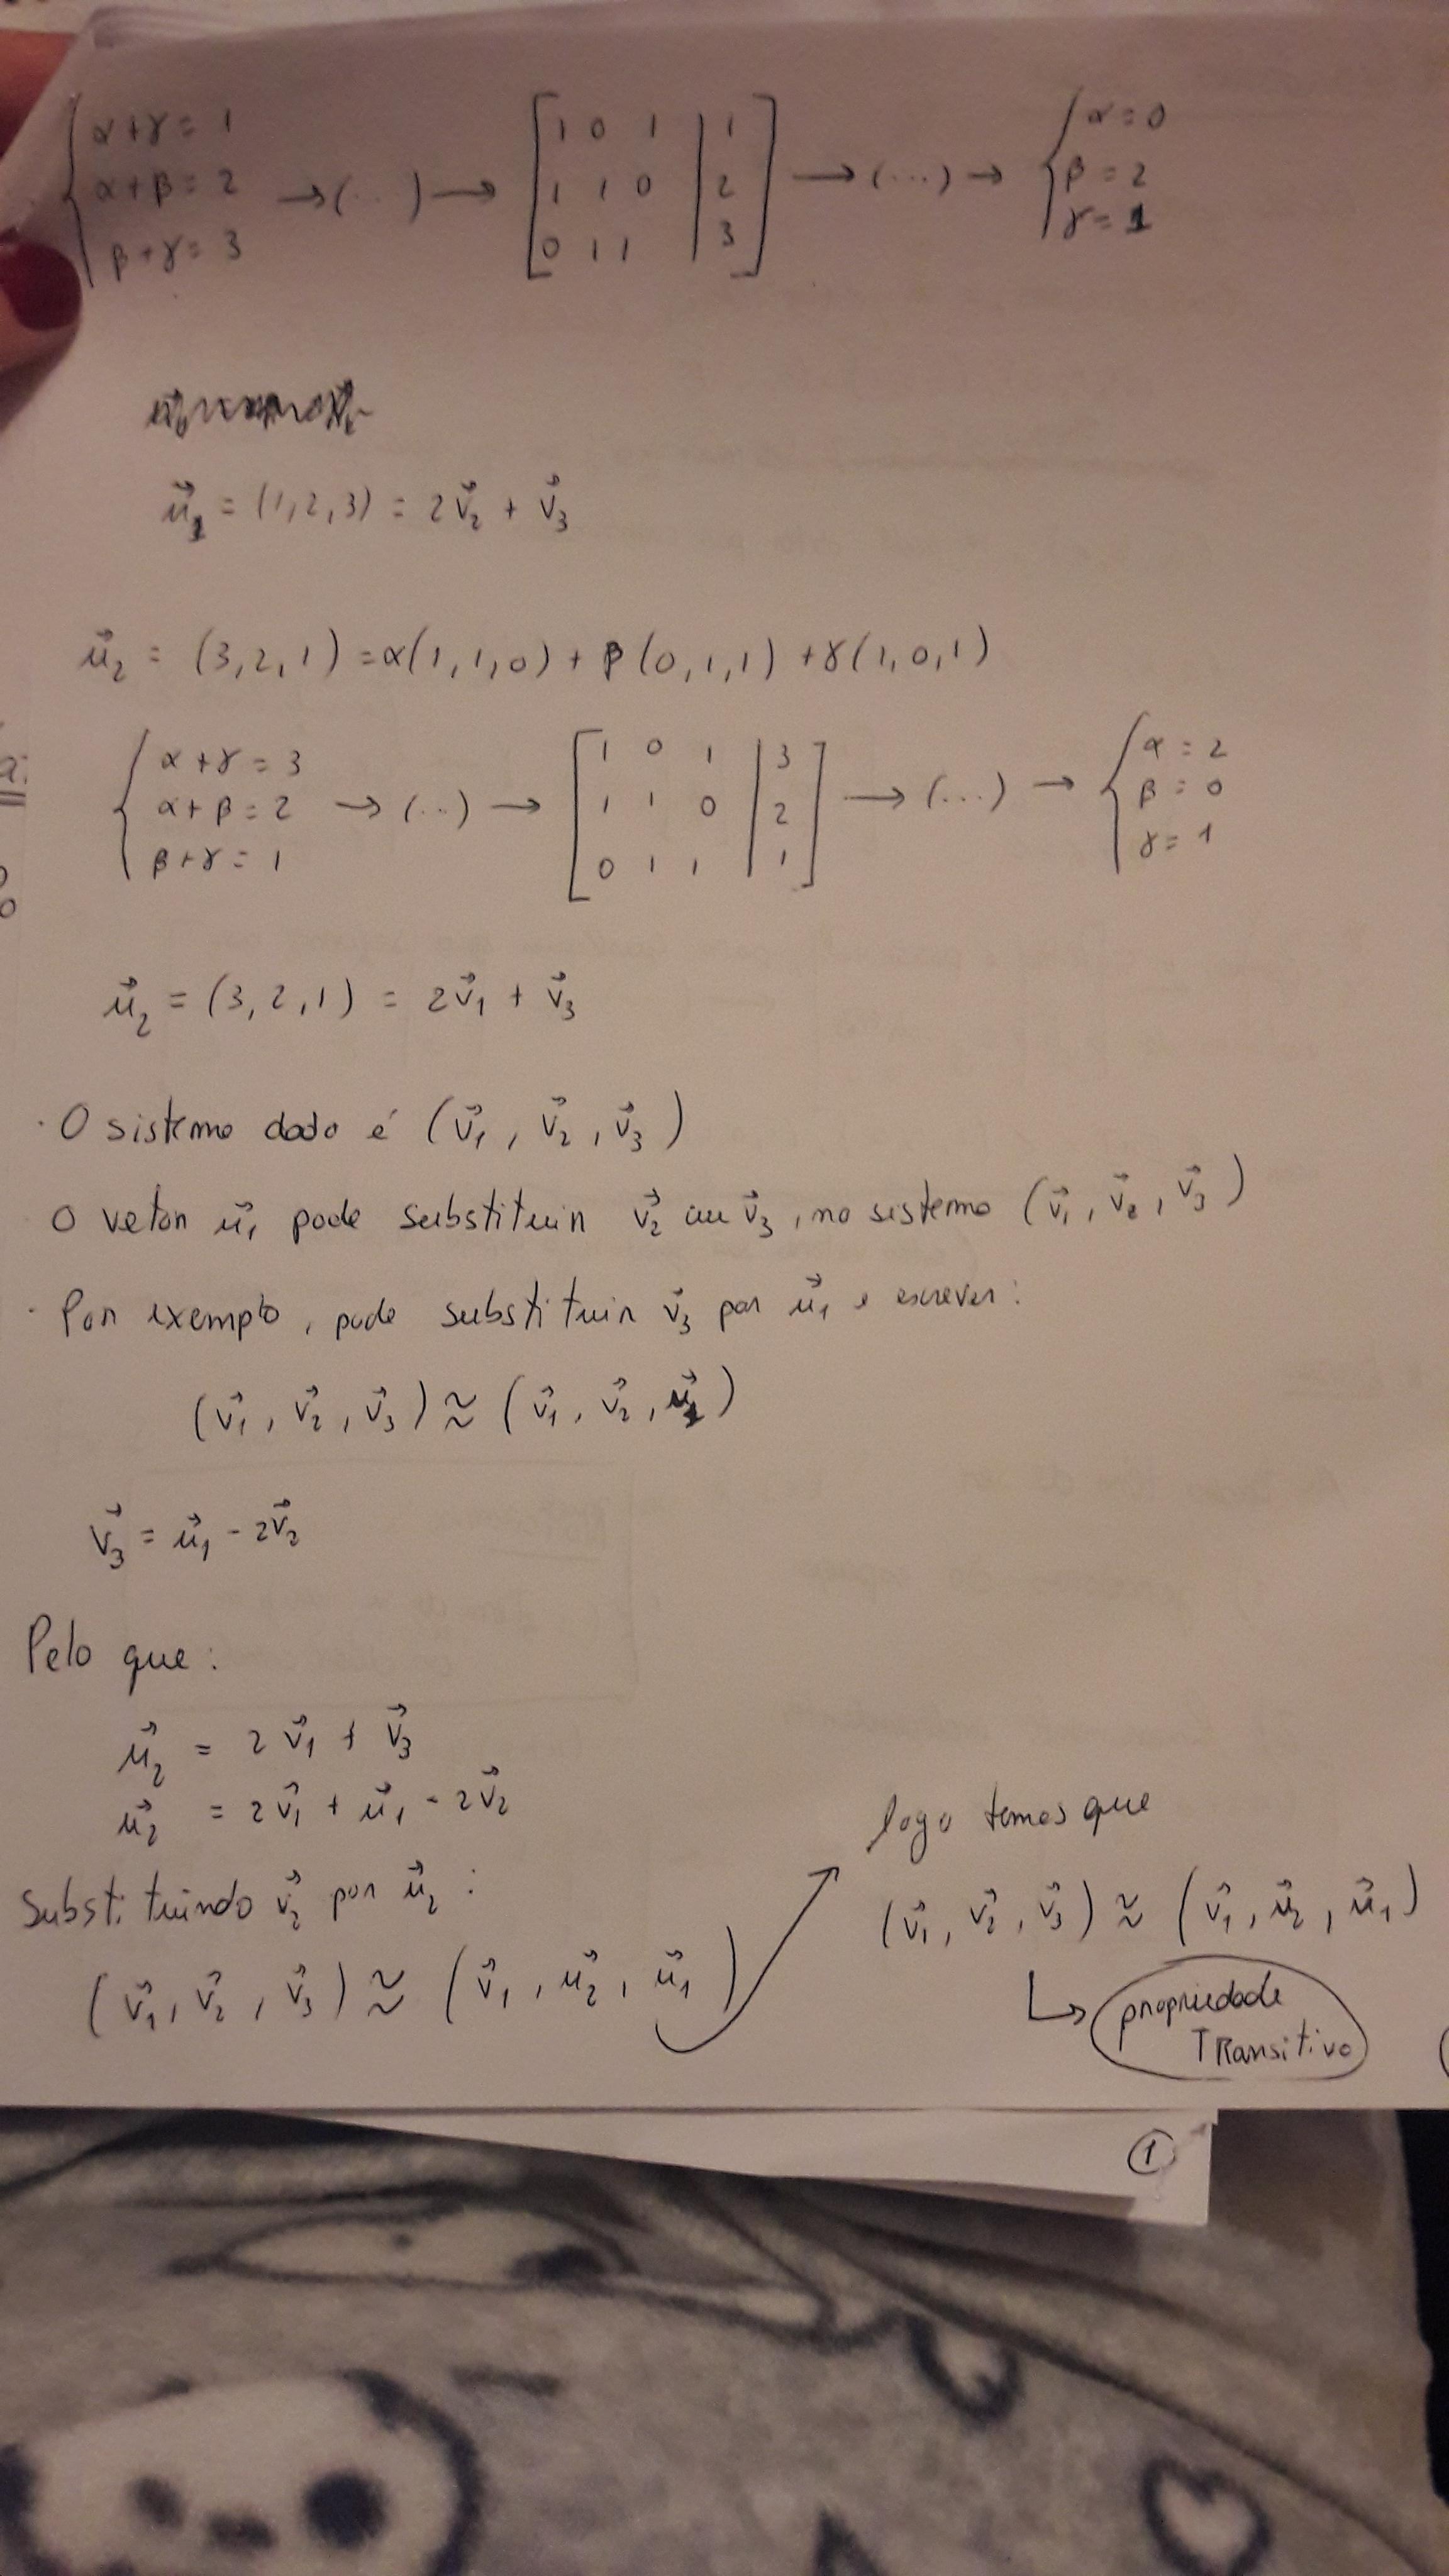 α+γ = 1
α+β = 2
β+γ = 3
→(...)→
[1 0 1 | 1]
[1 1 0 | 2]
[0 1 1 | 3]
→(...)→
α = 0
β = 2
γ = 1
u⃗₁ = (1,2,3) = 2v⃗₂ + v⃗₃
u⃗₂ = (3,2,1) = α(1,1,0) + β(0,1,1) + γ(1,0,1)
α+γ = 3
α+β = 2
β+γ = 1
→(...)→
[1 0 1 | 3]
[1 1 0 | 2]
[0 1 1 | 1]
→(...)→
α = 2
β = 0
γ = 1
u⃗₂ = (3,2,1) = 2v⃗₁ + v⃗₃
· O sistema dado é (v⃗₁, v⃗₂, v⃗₃)
O vetor u⃗₁ pode substituir v⃗₂ ou v⃗₃, no sistema (v⃗₁, v⃗₂, v⃗₃)
· Por exemplo, pode substituir v⃗₃ por u⃗₁ e escrever:
(v⃗₁, v⃗₂, v⃗₃) ≈ (v⃗₁, v⃗₂, u⃗₁)
v⃗₃ = u⃗₁ - 2v⃗₂
Pelo que:
u⃗₂ = 2v⃗₁ + v⃗₃
u⃗₂ = 2v⃗₁ + u⃗₁ - 2v⃗₂
Substituindo v⃗₂ por u⃗₂:
(v⃗₁, v⃗₂, v⃗₃) ≈ (v⃗₁, u⃗₂, u⃗₁)
logo temos que
(v⃗₁, v⃗₂, v⃗₃) ≈ (v⃗₁, u⃗₂, u⃗₁)
↳ propriedade
Transitiva
1